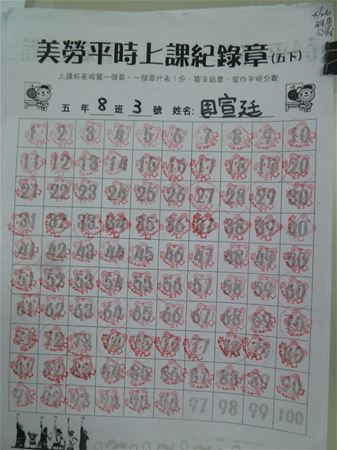 美勞平時上課紀錄章(五下)
上課好表現蓋一個章,一個章代表1分,期末結算,當作平時分數
五年8班3號 姓名:周宣廷
1 2 3 4 5 6 7 8 9 10
11 12 13 14 15 16 17 18 19 20
21 22 23 24 25 26 27 28 29 30
31 32 33 34 35 36 37 38 39 40
41 42 43 44 45 46 47 48 49 50
51 52 53 54 55 56 57 58 59 60
61 62 63 64 65 66 67 68 69 70
71 72 73 74 75 76 77 78 79 80
81 82 83 84 85 86 87 88 89 90
91 92 93 94 95 96 97 98 99 100